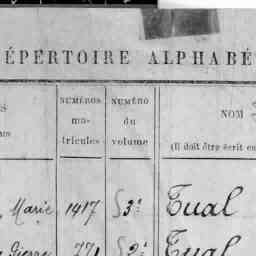 ÉPERTOIRE ALPHABÉ
NUMÉROS
ma-
tricules
NUMÉRO
du
volume
NOM
(Il doit être écrit en
Marie 1417 3e Tual
Pierre 771 2e Tual